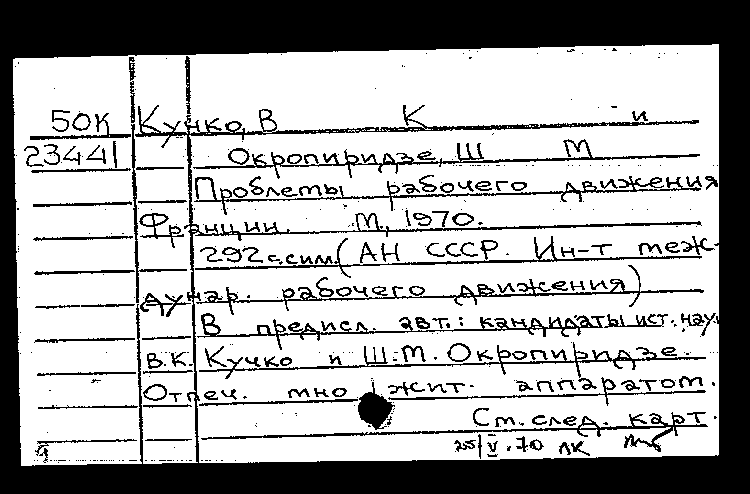 50К Кучко, В К и
23441 Окропиридзе, Ш М
Проблемы рабочего движения
Франции. М., 1970.
292 с. сим. (АН СССР. Ин-т меж-
дунар. рабочего движения)
В предисл. авт.: кандидаты ист. наук
В.К. Кучко и Ш.М. Окропиридзе.
Отпеч. множит. аппаратом.
См. след. карт.
9 25/V.70 ЛК